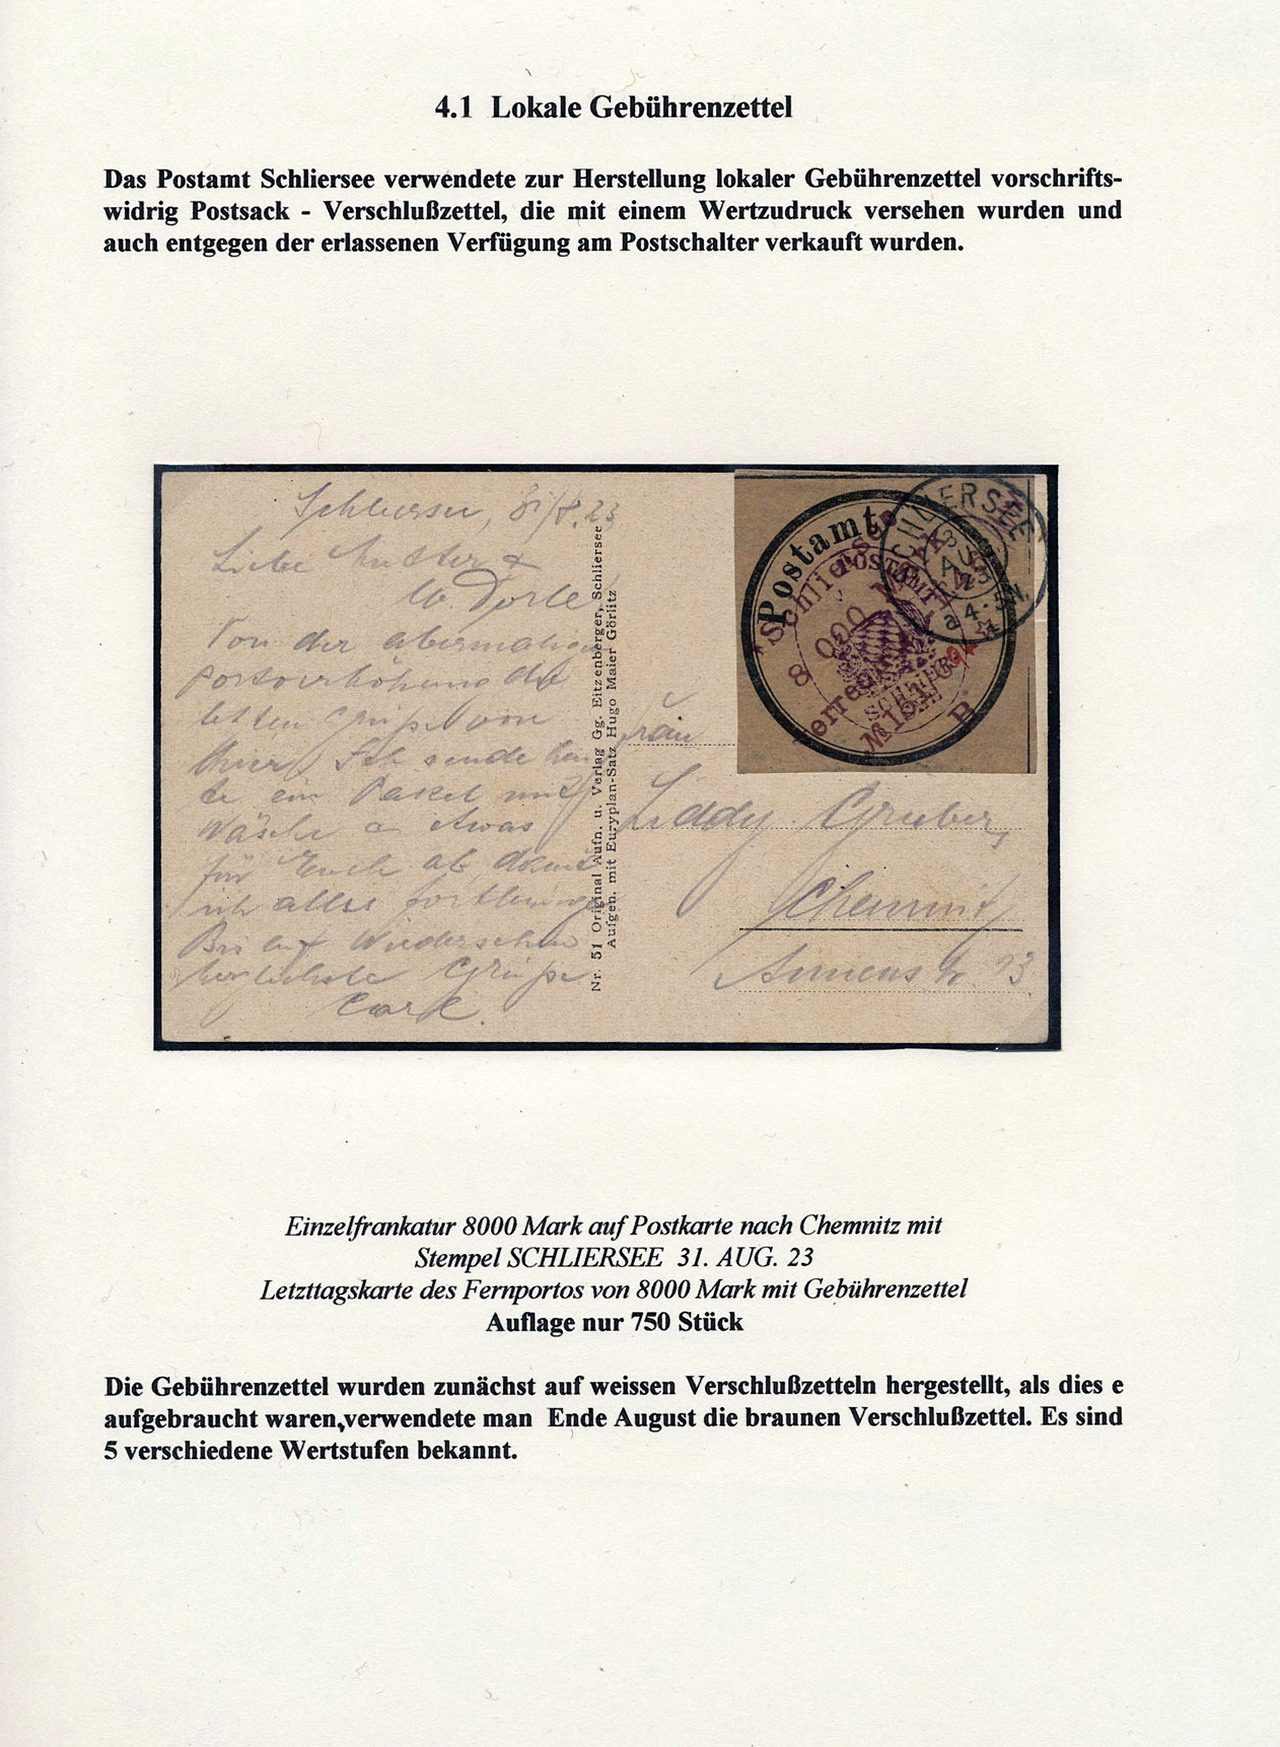 4.1 Lokale Gebührenzettel
Das Postamt Schliersee verwendete zur Herstellung lokaler Gebührenzettel vorschrifts-
widrig Postsack - Verschlußzettel, die mit einem Wertzudruck versehen wurden und
auch entgegen der erlassenen Verfügung am Postschalter verkauft wurden.
Schliersee, 31/8.23
Liebe Mutter &
Dorle!
Von der abermaligen
Portoerhöhung die
letzten Grüße von
hier. Ich sende heu
te ein Paket mit
Wäsche etwas
für Euch ab, damit
ich alles fortbringe.
Bis auf Wiedersehen
herzlichste Grüße
Nr. 51 Original Aufn. u. Verlag Gg. Eitzenberger, Schliersee
Aufgen. mit Euryplan-Satz Hugo Maier Görlitz
Postamt
Schliersee
8 000 MARK
POSTAMT
SCHLIERSEE
AUG
a 4-5 N.
B
Frau
Liddy Gruber,
Chemnitz
Einzelfrankatur 8000 Mark auf Postkarte nach Chemnitz mit
Stempel SCHLIERSEE 31. AUG. 23
Letzttagskarte des Fernportos von 8000 Mark mit Gebührenzettel
Auflage nur 750 Stück
Die Gebührenzettel wurden zunächst auf weissen Verschlußzetteln hergestellt, als dies e
aufgebraucht waren,verwendete man Ende August die braunen Verschlußzettel. Es sind
5 verschiedene Wertstufen bekannt.